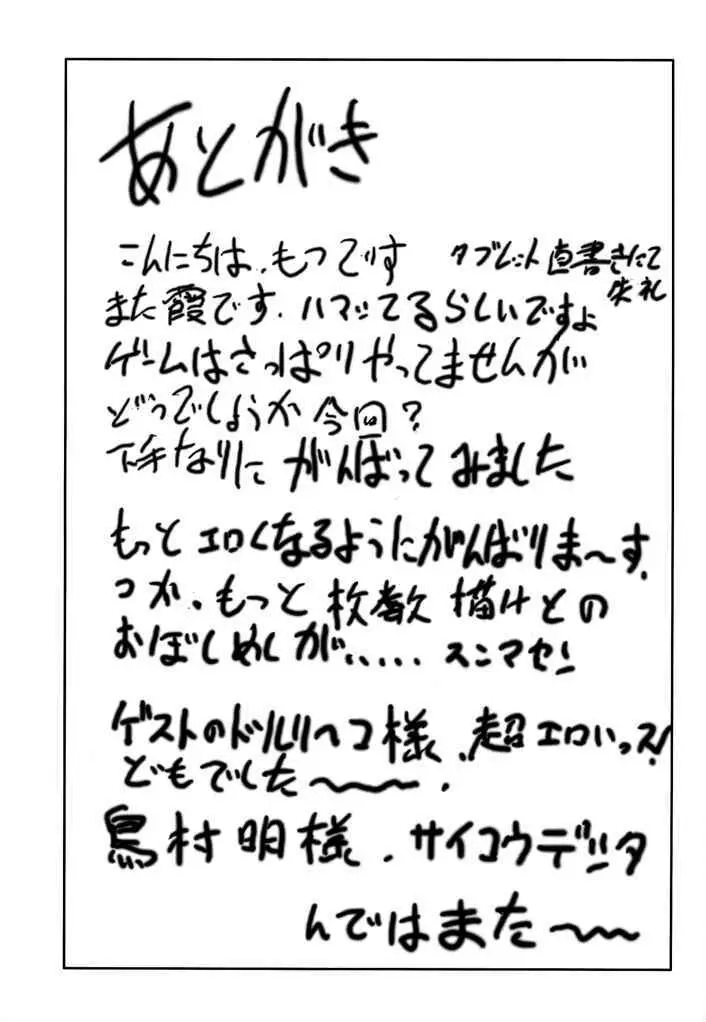 あとがき
こんにちは、もつです タブレット直書きにて失礼
また霞です、ハマッてるらしいですよ
ゲームはさっぱりやってませんが
どうでしょうか今回?
下手なりに がんばってみました
もっとエロくなるようにがんばりま〜す、
つか、もっと枚数描けとの
おぼしめしが、、、、、 スンマセン
ゲストのドルリヘコ様、超エロいっス!
どもでした〜〜、
鳥村明様、サイコウデシタ
んではまた〜〜